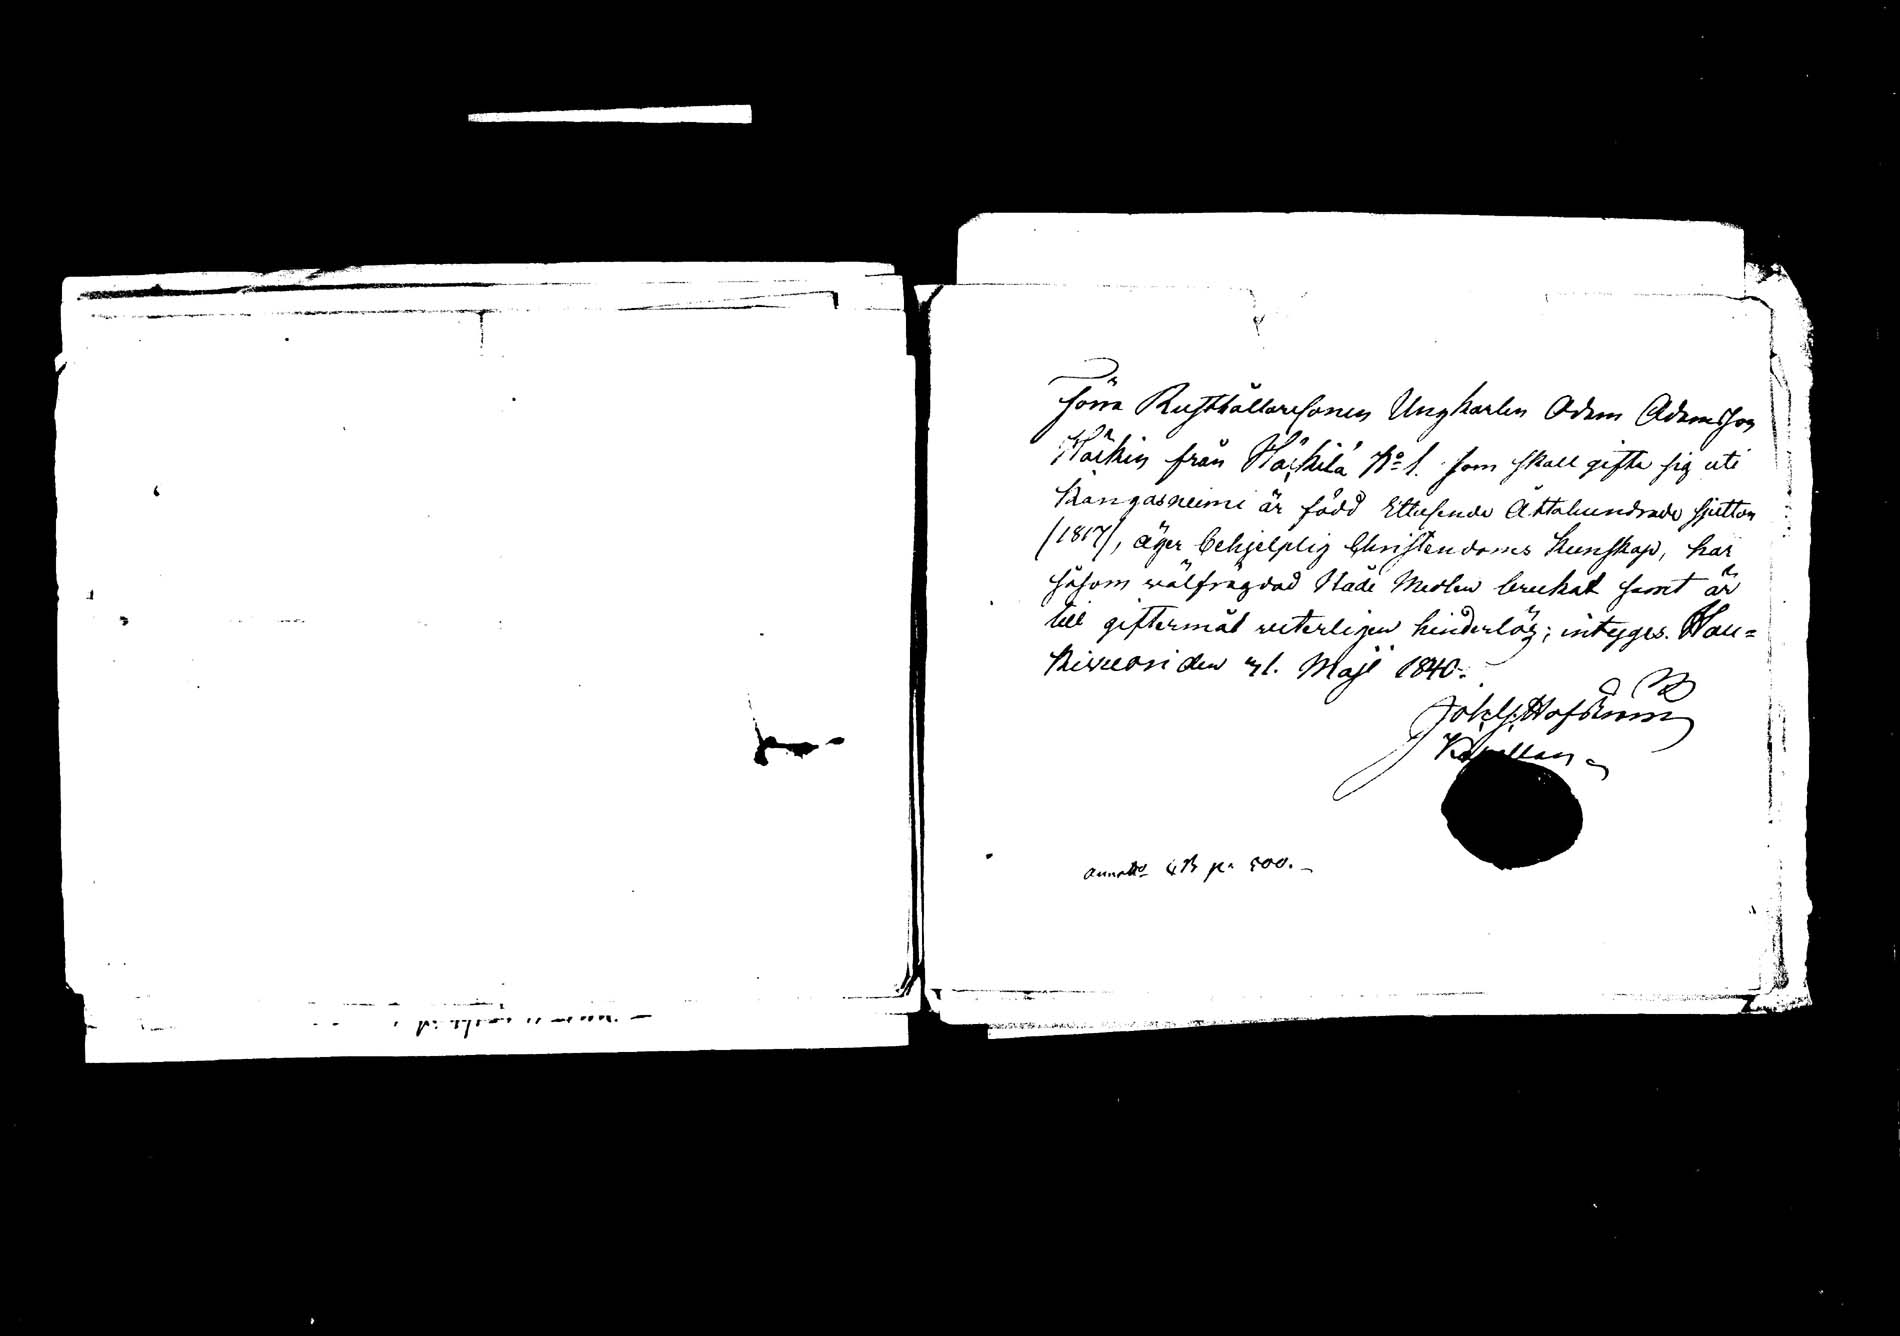 Förra Rusthållaresonen Ungkarlen Adam Adamsson
Häkin från Häkilä No 1. som skall gifta sig uti
Kangasniemi är född Ettusende Åttahundrade sjutton
(1817), äger behjelplig Christendoms kunskap, har
såsom välfrägdad Nåde Medlen brukat samt är
till giftermål veterligen hinderlös; intygges. Hau=
kivuori den 31. Maji 1840.
Joh. G. Hofdman
Kapellan
Annot. på 500.